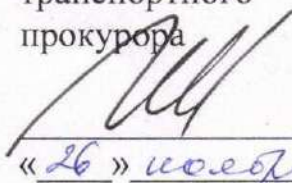 транспортного
прокурора
«26» нояб